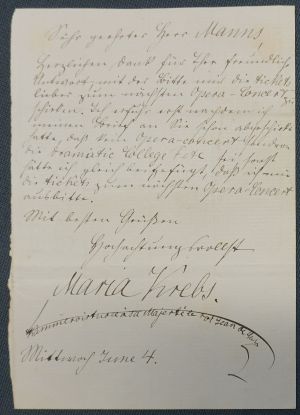 Sehr geehrter Herr Manns,
Herzlichen Dank für Ihre freundliche
Antwort, mit der Bitte mir die tickets
lieber zum nächsten Opera-Concert zu
schicken. Ich erfuhr erst nachdem ich
meinen Brief an Sie schon abgeschickt
hatte, daß kein Opera-concert sondern
die Dramatic College Fete sei, sonst
hätte ich gleich beigefügt, daß ich mir
die tickets zum nächsten Opera-Concert
ausbitte.
Mit besten Grüßen
Hochachtungsvollst
Maria Krebs.
Mittwoch June 4.